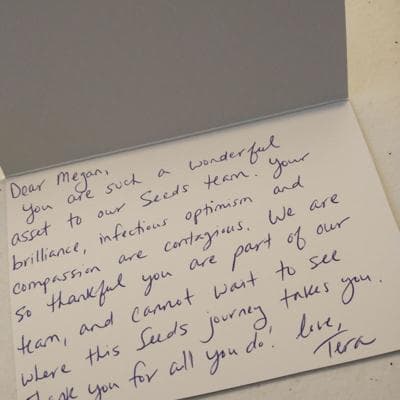 Dear Megan,
You are such a wonderful
asset to our Seeds team. Your
brilliance, infectious optimism and
compassion are contagious. We are
so thankful you are part of our
team, and cannot wait to see
where this Seeds journey takes you.
Thank you for all you do! Love,
Tera